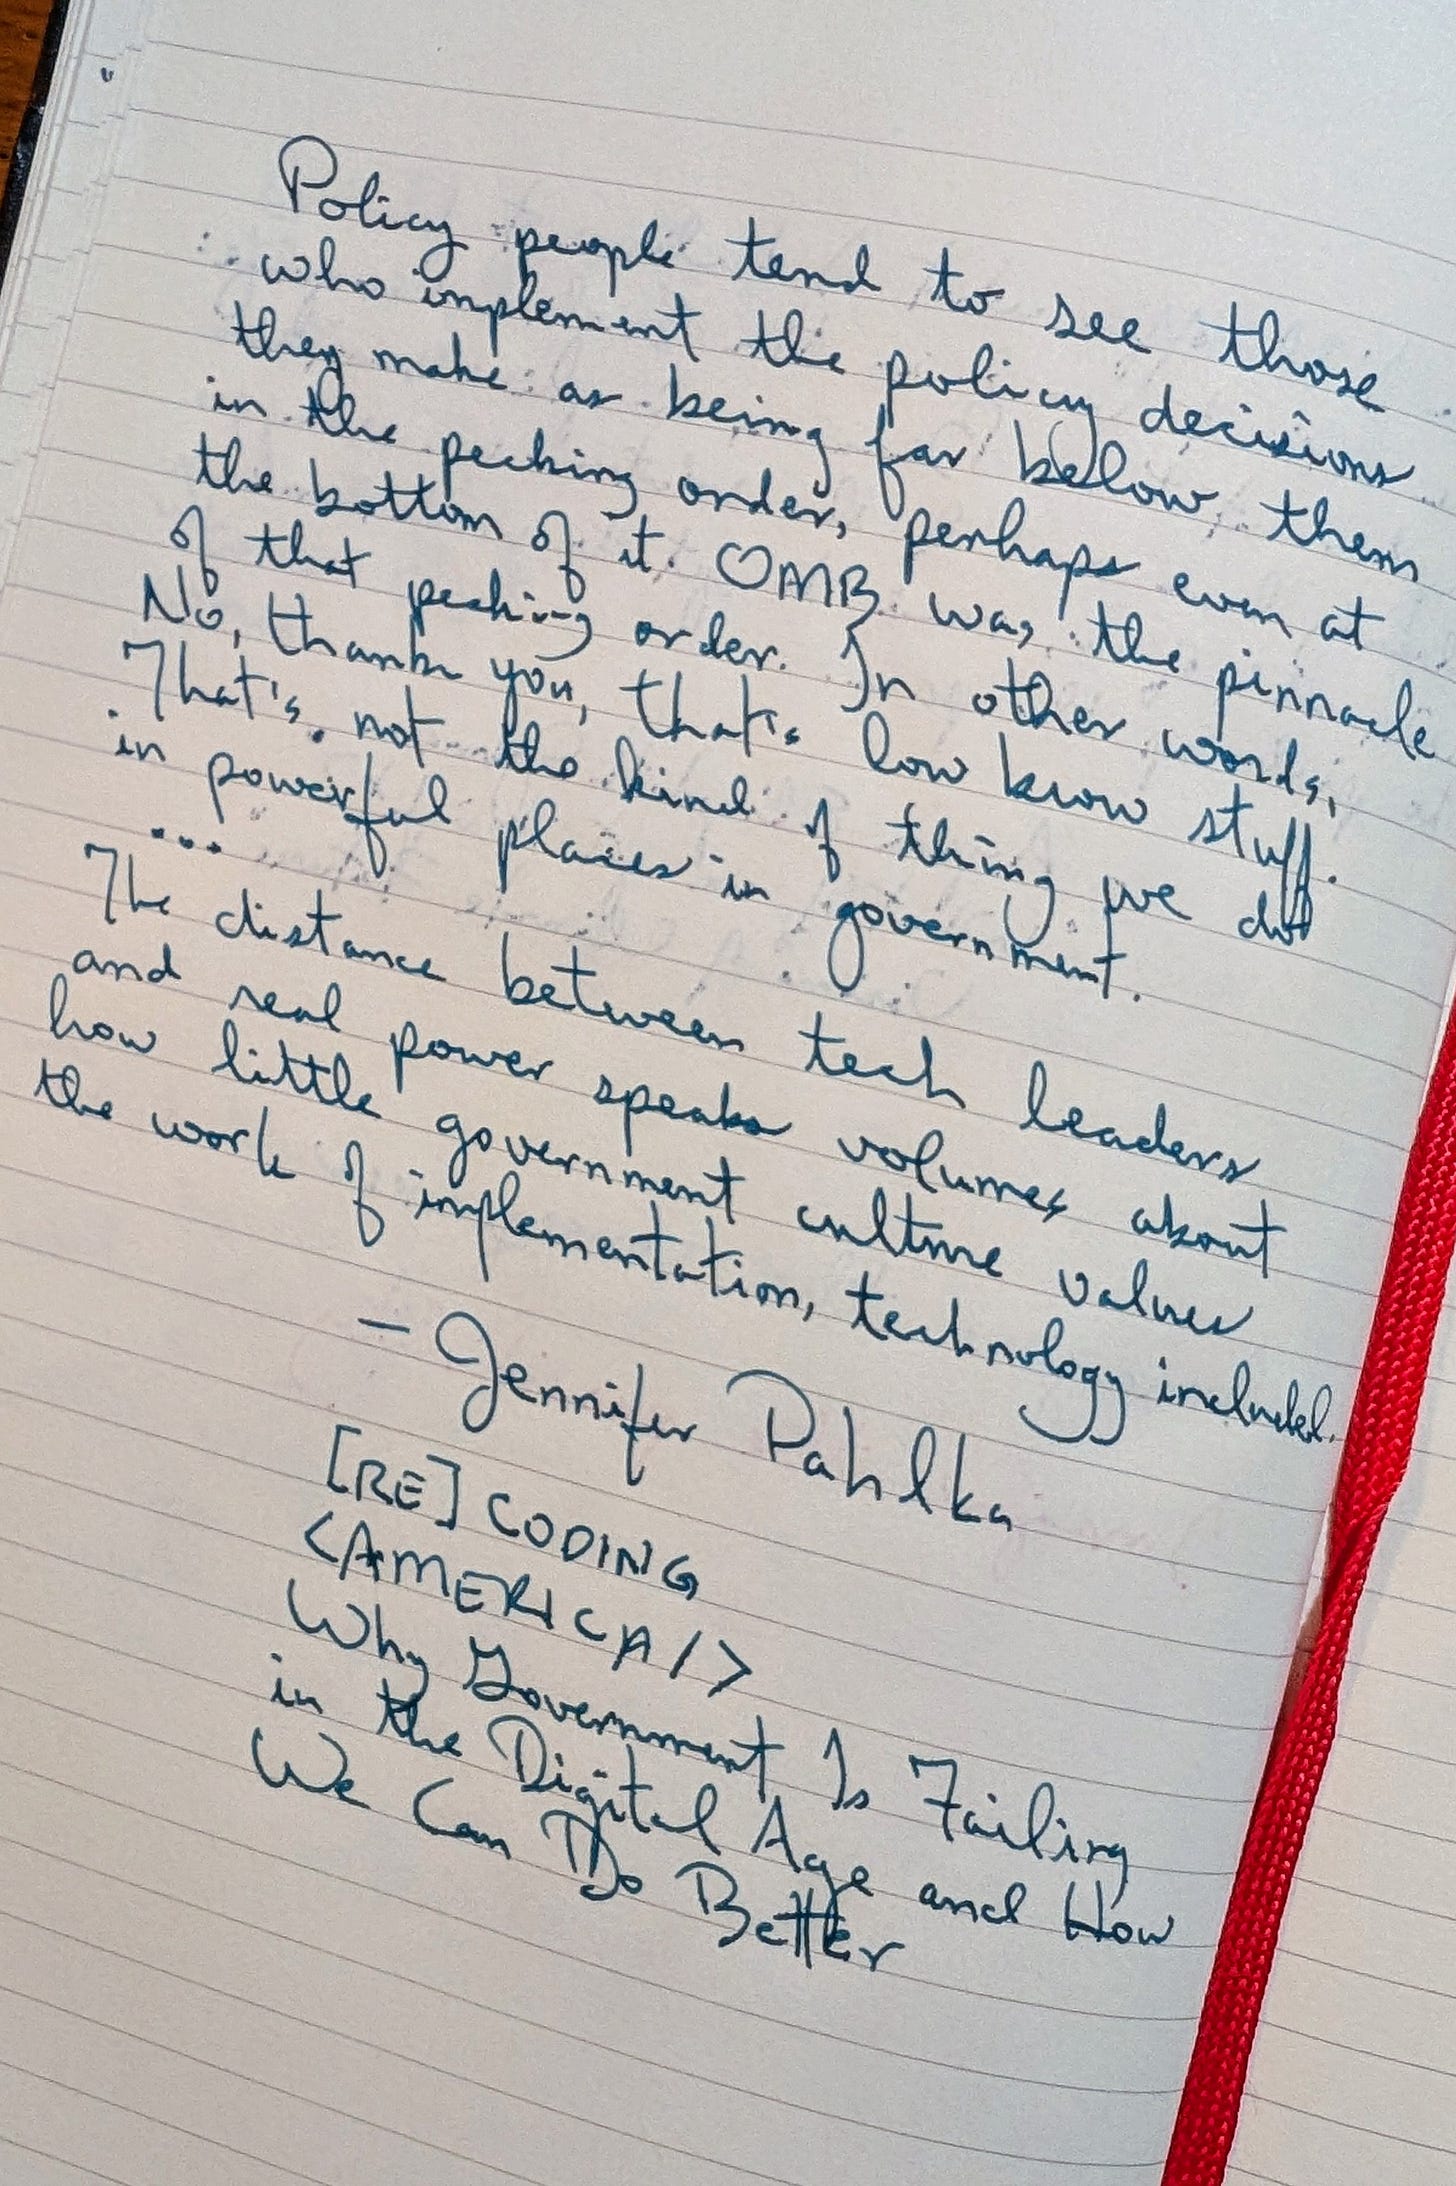 Policy people tend to see those
who implement the policy decisions
they make as being far below them
in the pecking order, perhaps even at
the bottom of it. OMB was the pinnacle
of that pecking order. In other words,
No, thank you, that's low brow stuff.
That's not the kind of thing we do
in powerful places in government.
...
The distance between tech leaders
and real power speaks volumes about
how little government culture values
the work of implementation, technology included.
– Jennifer Pahlka
[RE] CODING
<AMERICA/>
Why Government Is Failing
in the Digital Age and How
We Can Do Better